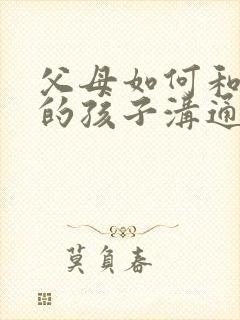 父母如何和
的孩子溝通
莫負春